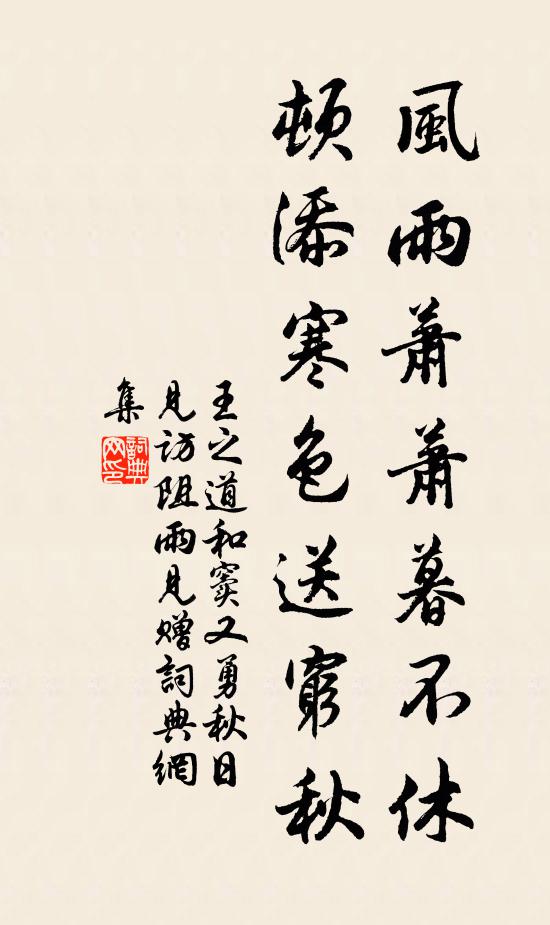 風雨蕭蕭暮不休
頓添寒色送窮秋
王之道和竇又勇秋日
見訪阻雨見贈詞典網
集
詞典
网印